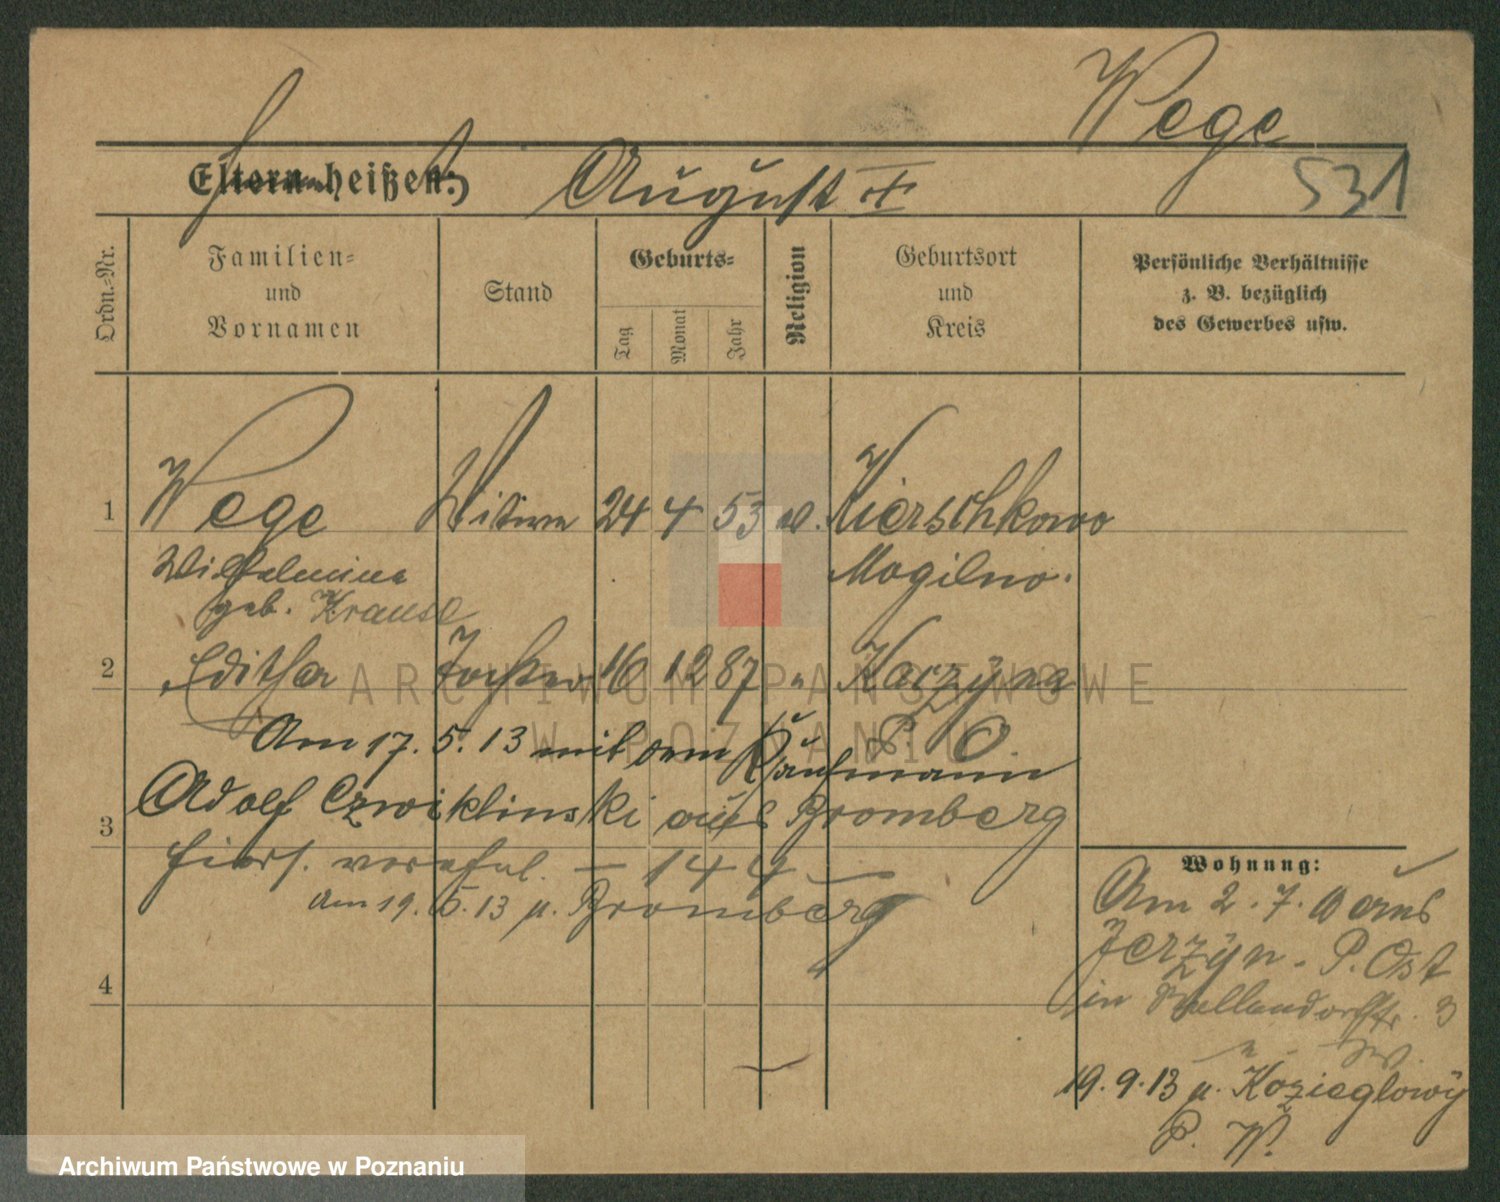 Wege
531
Eltern heißen:
August
Ordn.-Nr.
Familien-
und
Vornamen
Stand
Geburts-
Tag
Monat
Jahr
Religion
Geburtsort
und
Kreis
Persönliche Verhältnisse
z. B. bezüglich
des Gewerbes usw.
1 Wege Witwe 24 4 53 Kierschkowo
Wilhelmine Mogilno.
geb. Krause
2 Editha Tochter 16 12 87 " Karzyn
Am 17. 5. 13 mit dem Kaufmann P. O.
3 Adolf Czwiklinski aus Bromberg
hiers. verehel. – 144 –
Am 19. 5. 13 n. Bromberg
4
Wohnung:
Am 2. 7. aus
Jerzyn. P. Ost
in 3
19. 9. 13 n. Kozieglowy
P. W.
ARCHIWUM PAŃSTWOWE
W POZNANIU
Archiwum Państwowe w Poznaniu